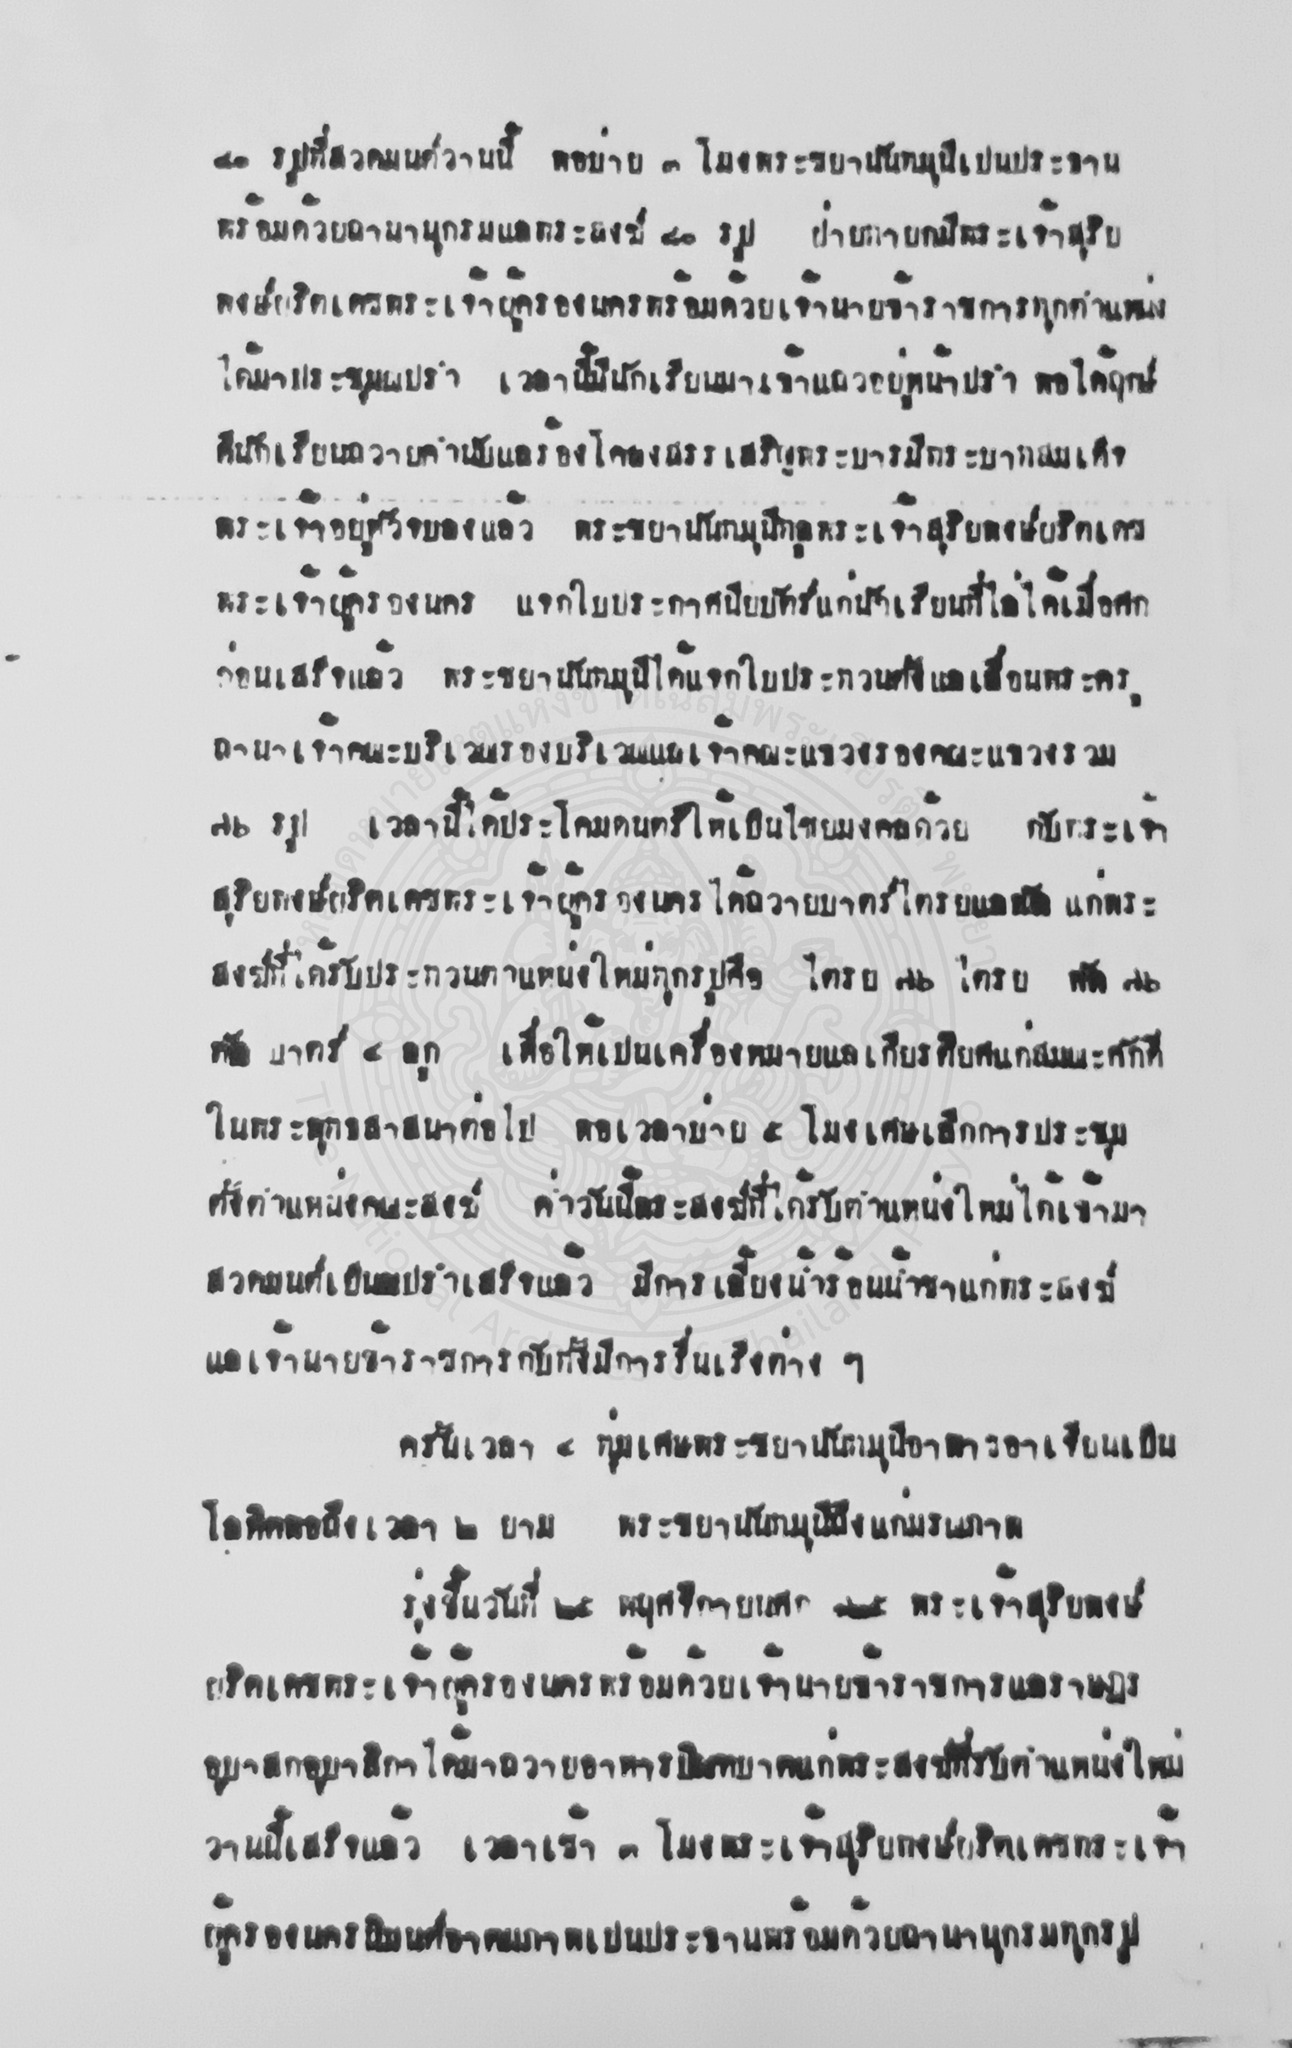 ๔๐ รูปที่สวดมนต์วานนี้ พอบ่าย ๓ โมงพระชยานันทมุนีเปนประธาน
พร้อมด้วยถานานุกรมแลพระสงฆ์ ๔๐ รูป ฝ่ายกายกมีพระเจ้าสุริย
พงษ์ผริตเดชพระเจ้าผู้ครองนครพร้อมด้วยเจ้านายข้าราชการทุกตำแหน่ง
ได้มาประชุมณปรำ เวลานี้มีนักเรียนมาเข้าแถวอยู่หน้าปรำ พอได้ฤกษ์
ดีนักเรียนถวายคำนับแลร้องโคลงสรรเสริญพระบารมีพระบาทสมเด็จ
พระเจ้าอยู่หัวจบลงแล้ว พระชยานันทมุนีทูลพระเจ้าสุริยพงษ์ผริตเดช
พระเจ้าผู้ครองนคร แจกใบประกาศนียบัตร์แก่นักเรียนที่ไล่ได้เมื่อศก
ก่อนเสร็จแล้ว พระชยานันทมุนีได้แจกใบประทวนตั้งแลเลื่อนพระครู
ถานาเจ้าคณะบริเวณรองบริเวณแลเจ้าคณะแขวงรองคณะแขวงรวม
๗๖ รูป เวลานี้ได้ประโคมดนตรีให้เป็นไชยมงคลด้วย กับพระเจ้า
สุริยพงษ์ผริตเดชพระเจ้าผู้ครองนครได้ถวายบาตร์ไตรยแลพัด แก่พระ
สงฆ์ที่ได้รับประทวนตำแหน่งใหม่ทุกรูปคือ ไตรย ๗๖ ไตรย พัด ๗๖
พัด บาตร์ ๔ ลูก เพื่อให้เปนเครื่องหมายแลเกียรติยศแก่สมณะศักดิ์
ในพระพุทธสาสนาต่อไป พอเวลาบ่าย ๕ โมงเศษเลิกการประชุม
ตั้งตำแหน่งคณะสงฆ์ ค่ำวันนี้พระสงฆ์ที่ได้รับตำแหน่งใหม่ได้เข้ามา
สวดมนต์เย็นณปรำเสร็จแล้ว มีการเลี้ยงน้ำร้อนน้ำชาแก่พระสงฆ์
แลเจ้านายข้าราชการกับทั้งมีการรื่นเริงต่าง ๆ
ครั้นเวลา ๔ ทุ่มเศษพระชยานันทมุนีอาพาธอาเจียนเป็น
โลหิตพอถึงเวลา ๒ ยาม พระชยานันทมุนีถึงแก่มรณภาพ
รุ่งขึ้นวันที่ ๒๕ พฤศจิกายนศก ๑๒๕ พระเจ้าสุริยพงษ์
ผริตเดชพระเจ้าผู้ครองนครพร้อมด้วยเจ้านายข้าราชการแลราษฎร
อุบาสกอุบาสิกาได้มาถวายอาหารบิณฑบาตแก่พระสงฆ์ที่รับตำแหน่งใหม่
วานนี้เสร็จแล้ว เวลาเช้า ๓ โมงพระเจ้าสุริยพงษ์ผริตเดชพระเจ้า
ผู้ครองนครนิมนต์ เปนประธานพร้อมด้วยถานานุกรมทุกรูป
หอจดหมายเหตุแห่งชาติเฉลิมพระเกียรติฯ พะเยา
The National Archives of Thailand